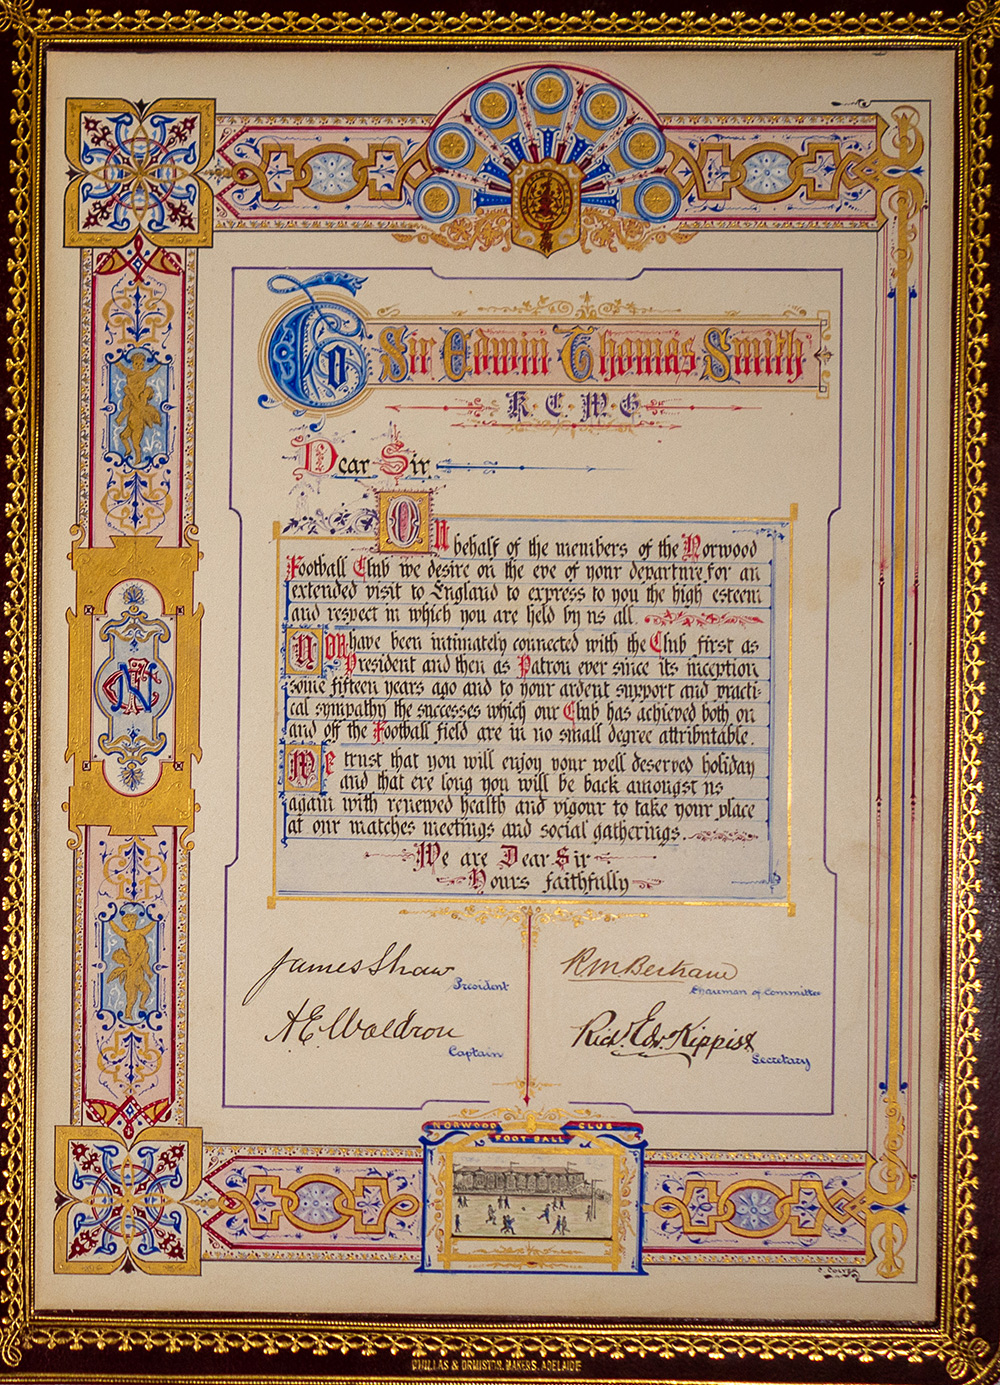 To Sir Edwin Thomas Smith
K. C. M. G
Dear Sir
On behalf of the members of the Norwood
Football Club we desire on the eve of your departure for an
extended visit to England to express to you the high esteem
and respect in which you are held by us all.
You have been intimately connected with the Club first as
President and then as Patron ever since its inception
some fifteen years ago and to your ardent support and practi-
cal sympathy the successes which our Club has achieved both on
and off the Football field are in no small degree attributable.
We trust that you will enjoy your well deserved holiday
and that ere long you will be back amongst us
again with renewed health and vigour to take your place
at our matches meetings and social gatherings.
We are Dear Sir
Yours faithfully
James Shaw
President
R M. Bertram
Chairman of Committee
A E Waldron
Captain
Richd. Edw Kippist
Secretary
NORWOOD CLUB
FOOT BALL
& ORMISTON. MAKERS. ADELAIDE